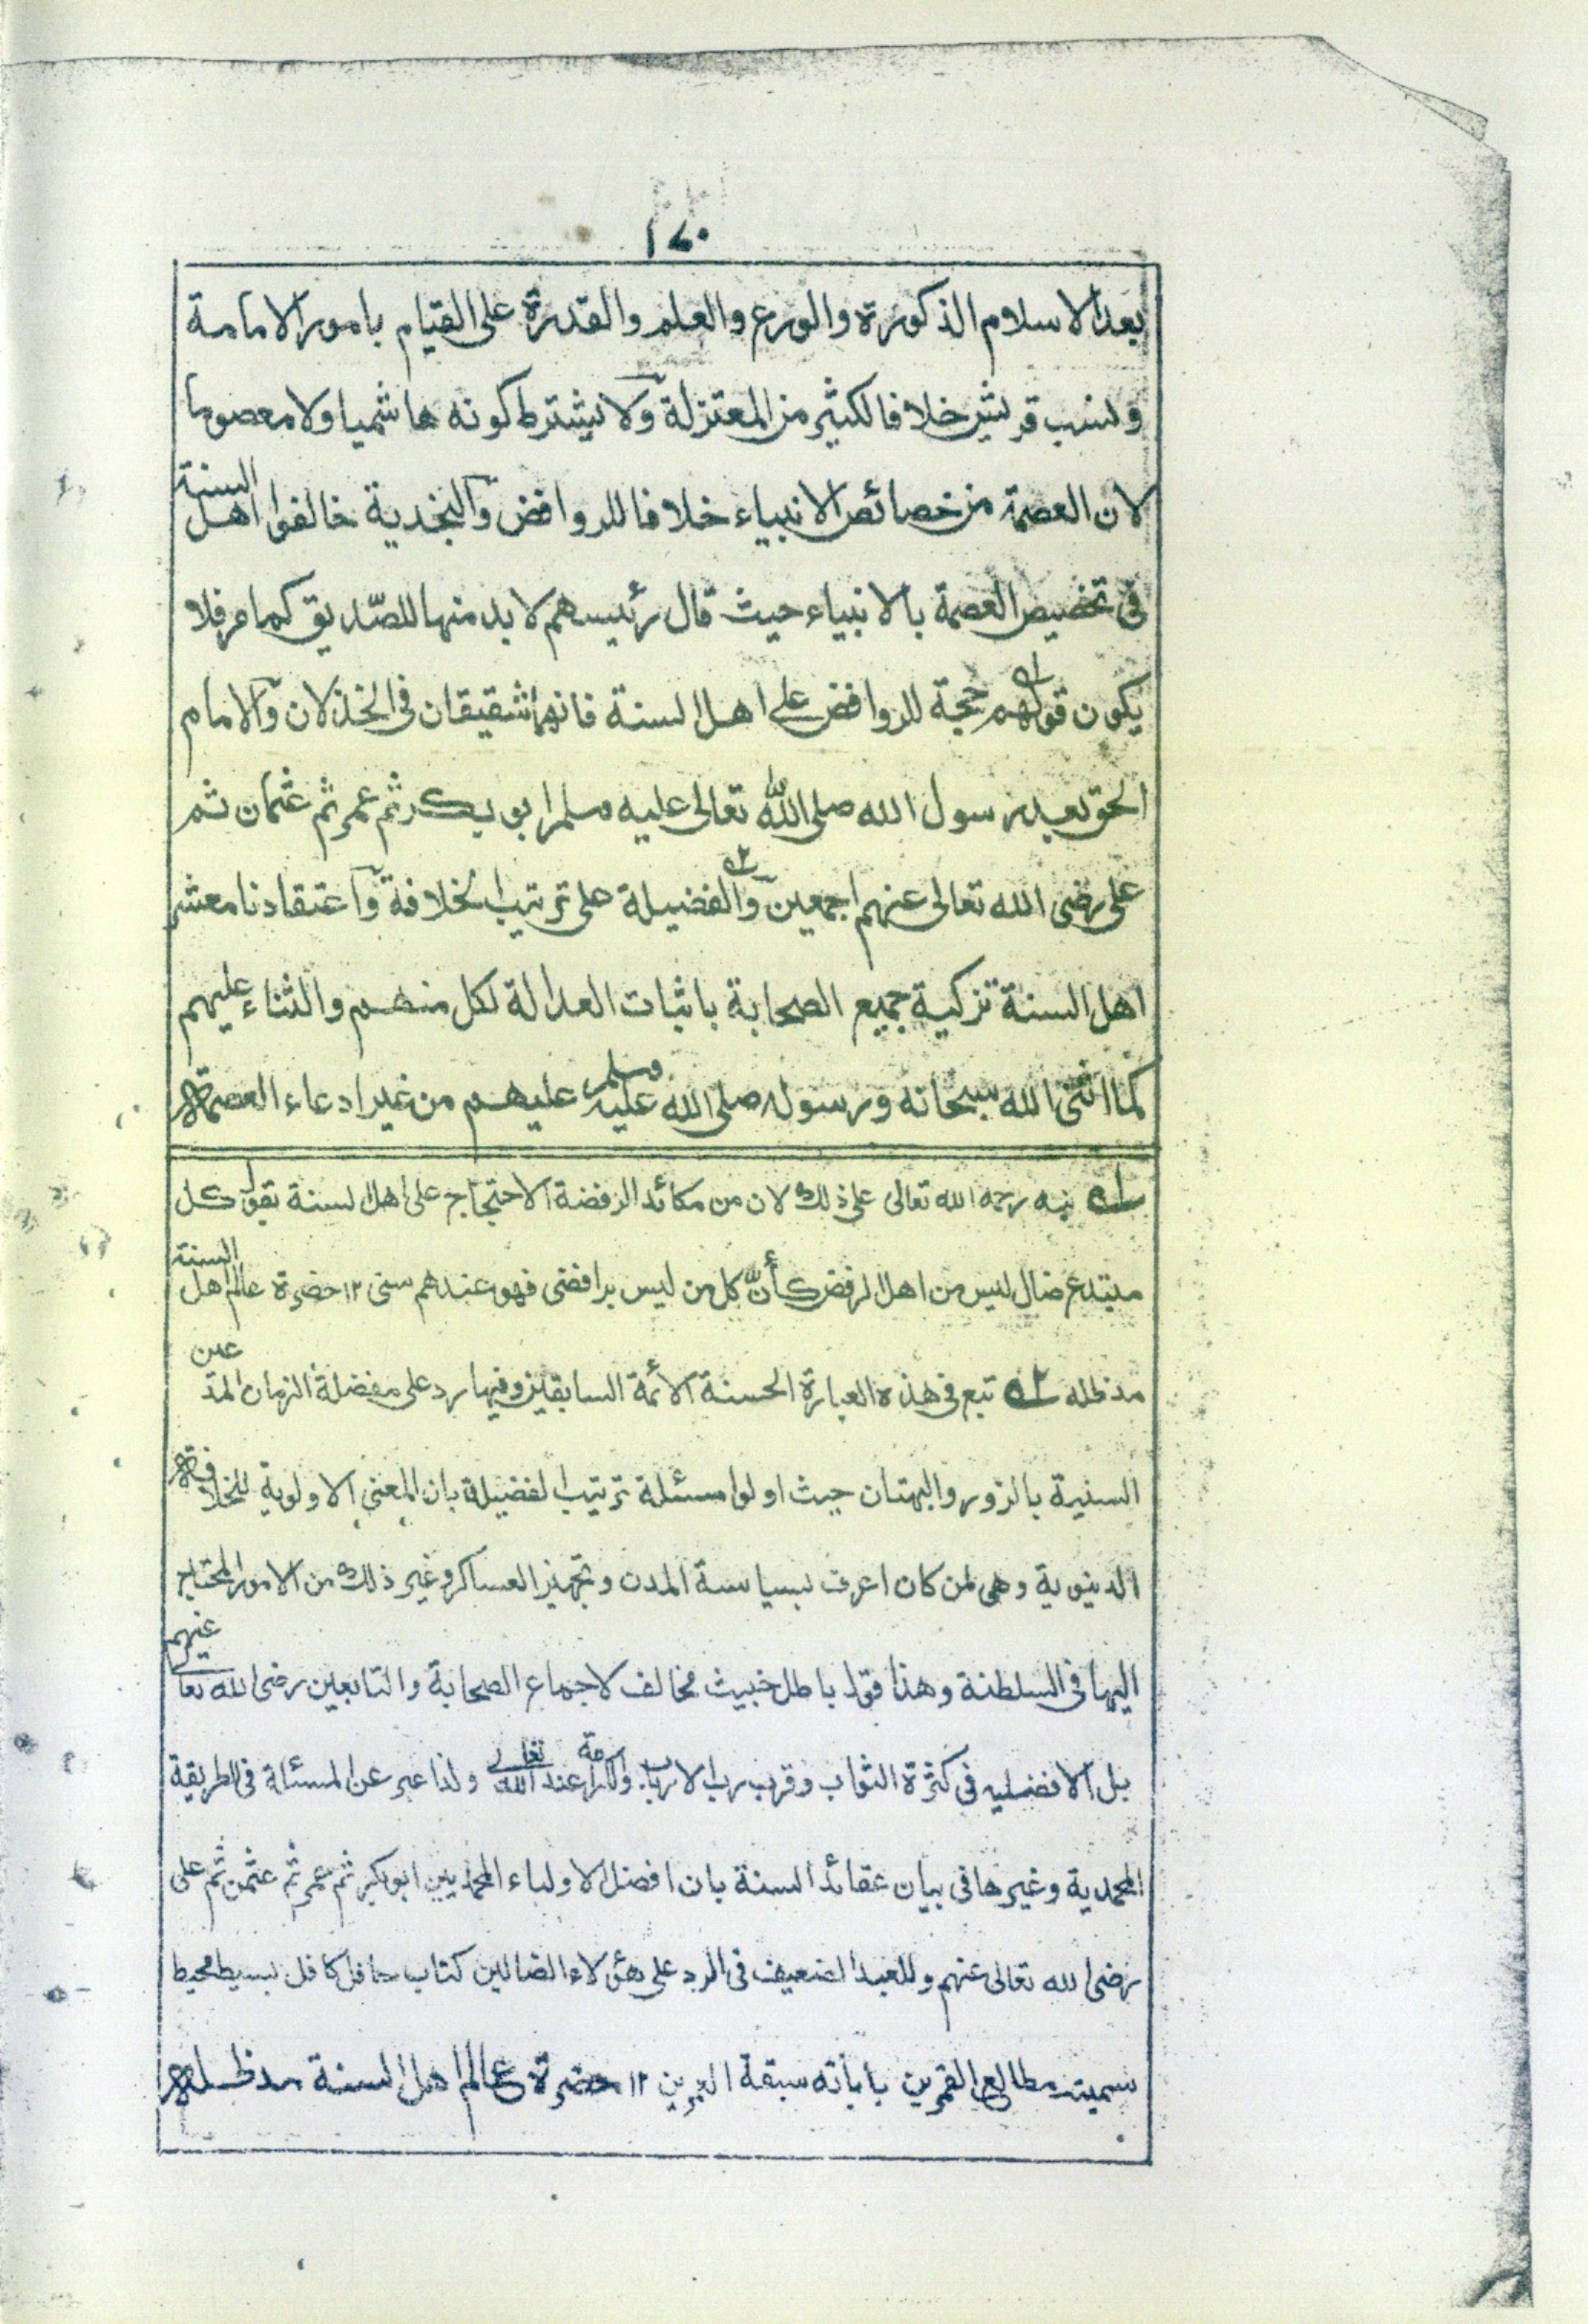 ١٤٠
بعد الاسلام الذكورة والورع والعلم والقدرة على القيام بامور الامامة
ونسب قريش خلافا لكثير من المعتزلة ولا يشترط كونه هاشميا ولا معصوما
لان العصمة من خصائص الانبياء خلافا للروافض والنجدية خالفوا اهل السنة
فى تخصيص العصمة بالانبياء حيث قال رئيسهم لابد منها للصّديق كما مر فلا
يكون قولهم ١ه حجة للروافض على اهل السنة فانهما شقيقان فى الخذلان والامام
الحق بعد رسول الله صلى الله تعالى عليه وسلم ابو بكر ثم عمر ثم عثمان ثم
على رضى الله تعالى عنهم اجمعين ٢ه والفضيلة على ترتيب الخلافة واعتقادنا معشر
اهل السنة تزكية جميع الصحابة باثبات العدالة لكل منهم والثناء عليهم
كما اثنى الله سبحانه ورسوله صلى الله عليه وسلم عليهم من غير ادعاء العصمة
١ه نبه رحمه الله تعالى على ذلك لان من مكائد الرفضة الاحتجاج على اهل السنة بقول كل
مبتدع ضال ليس من اهل الرفض كأنّ كل من ليس برافضى فهو عندهم سنى ١٢ حضرة عالم اهل السنة
مدظله ٢ه تبع فى هذه العبارة الحسنة الائمة السابقين وفيها رد على مفضلة الزمان المدعين
السنية بالزور والبهتان حيث اولوا مسئلة ترتيب الفضيلة بان المعنى الاولوية للخلافة
الدنيوية وهى لمن كان اعرف بسياسة المدن وتجهيز العساكر وغير ذلك من الامور المحتاج
اليها فى السلطنة وهذا قول باطل خبيث مخالف لاجماع الصحابة والتابعين رضى الله تعالى عنهم
بل الافضلية فى كثرة الثواب وقرب رب الارباب والكرامة عند الله تعالى ولذا عبر عن المسئلة فى الطريقة
المحمدية وغيرها فى بيان عقائد السنة بان افضل الاولياء المحمديين ابوبكر ثم عمر ثم عثمن ثم على
رضى الله تعالى عنهم وللعبد الضعيف فى الرد على هؤلاء الضالين كتاب حافل كافل بسيط محيط
سميته مطالع القمرين بابانة سبقة العمرين ١٢ حضرة عالم اهل السنة مدظله